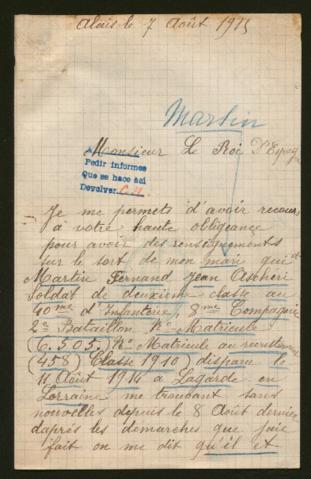 Alais le 7 Août 1915
Martin
Monsieur Le Roi D'Espag
Pedir informes
Que se hace asi
Devolver
Je me permets d'avoir recours
à votre haute obligeance
pour avoir des renseignements
sur le sort de mon mari qui est
Martin Fernand Jean
Soldat de deuxième classe au
40me d'Infanterie, 8me Compagnie
2e Bataillon No Matricule
(6.505) No Matricule au
(458) Classe 1910) disparu le
11 Août 1914 a Lagarde en
Lorraine me trouvant sans
nouvelles depuis le 8 Août dernier
daprès les démarches que jaie
fait on me dit qu'il et